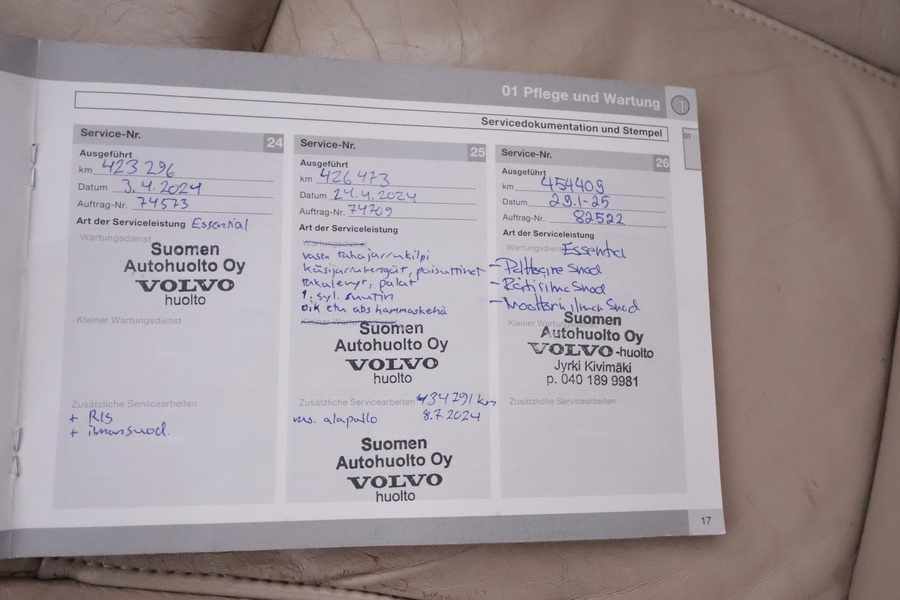 01 Pflege und Wartung
Servicedokumentation und Stempel
01
Service-Nr. 24
Ausgeführt
km 423 296
Datum 3.4.2024
Auftrag-Nr. 74573
Art der Serviceleistung Essential
Wartungsdienst
Suomen
Autohuolto Oy
VOLVO
huolto
Kleiner Wartungsdienst
Zusätzliche Servicearbeiten
+ RIS
+ ilmansuod.
Service-Nr. 25
Ausgeführt
km 426 473
Datum 24.4.2024
Auftrag-Nr. 74709
Art der Serviceleistung
Wartungsdienst
vasen takajarrukilpi
käsijarrukengät, puisuttimet
takalevyt, palat
1. syl. suutin
oik etu abs hammaskehä
Kleiner Wartungsdienst
Suomen
Autohuolto Oy
VOLVO
huolto
Zusätzliche Servicearbeiten 434791 km
vas. alapallo 8.7.2024
Suomen
Autohuolto Oy
VOLVO
huolto
Service-Nr. 26
Ausgeführt
km 454409
Datum 29.1-25
Auftrag-Nr. 82522
Art der Serviceleistung
Wartungsdienst Essential
- Polttoaine Suod
- Raitisilma Suod
- Moottorin ilman Suod
Kleiner
Suomen
Autohuolto Oy
VOLVO-huolto
Jyrki Kivimäki
p. 040 189 9981
Zusätzliche Servicearbeiten
17